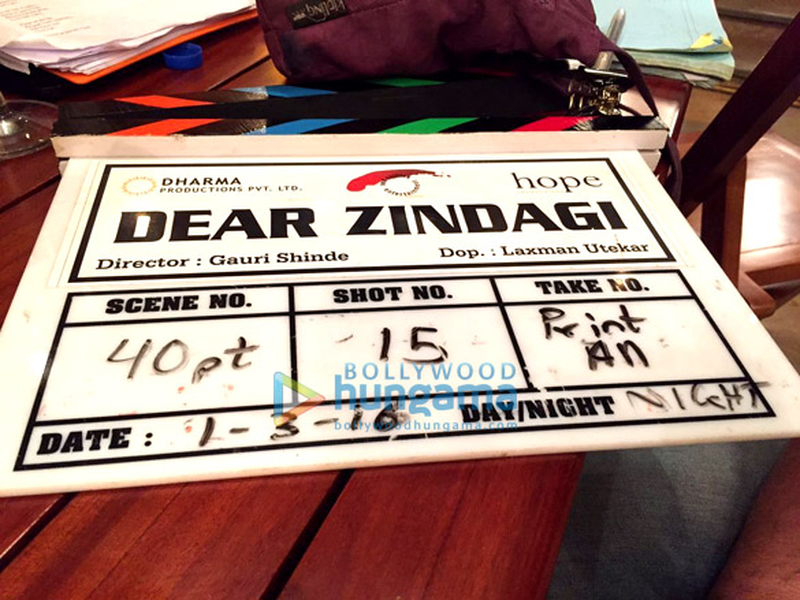 Kipling
DHARMA
PRODUCTIONS PVT. LTD.
hope
DEAR ZINDAGI
Director : Gauri Shinde
Dop. : Laxman Utekar
SCENE NO.
SHOT NO.
TAKE NO.
40pt
15
Print
AN
BOLLYWOOD
hungama
bollywoodhungama.com
DATE :
DAY/NIGHT
NIGHT